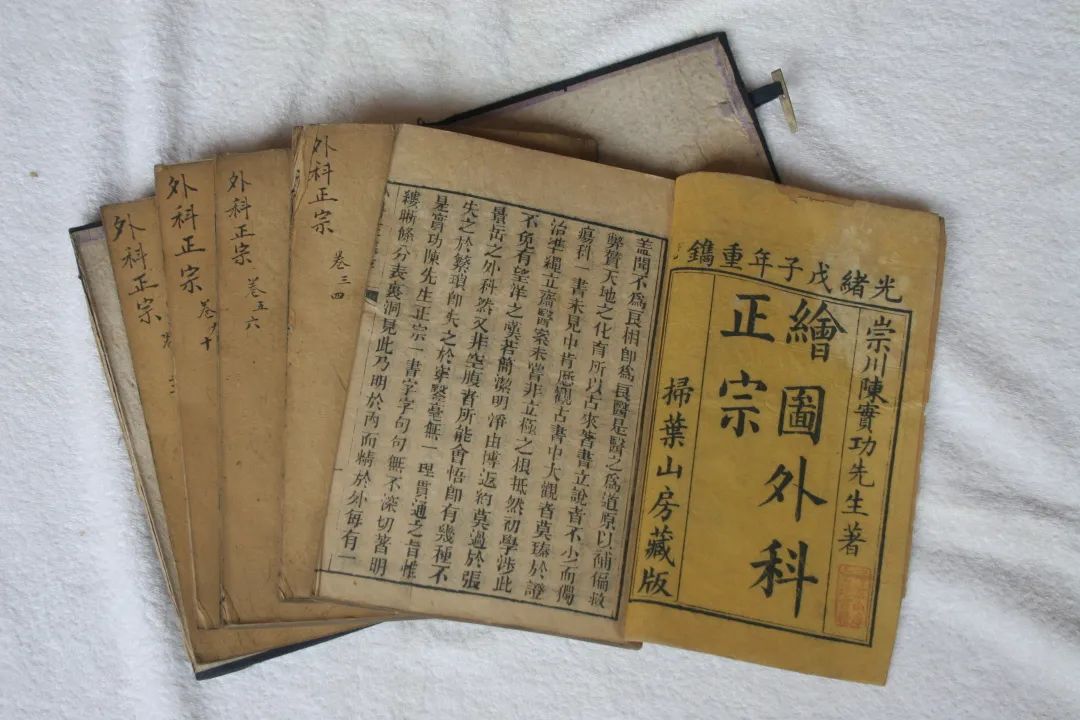 光緒戊子年重鐫
崇川陳實功先生著
繪圖外科
正宗
掃葉山房藏版
蓋聞不爲良相卽爲良醫是醫之爲道原以補偏救
弊贊天地之化育所以古來著書立說者不少而獨
瘍科一書未見中肯歷觀古書中大觀者莫瑧於證
治準繩立齋醫案未嘗非立極之根抵然初學涉此
不免有望洋之嘆若簡潔明淨由博返約莫過於張
景岳之外科然又非空腹者所能會悟卽有幾種不
失之於繁瑣卽失之於窄毫無一理貫通之旨惟
是實功陳先生正宗一書字字句句無不深切著明
縷晰條分表裏洞見此乃明於內而精於外每有一
外科正宗 卷三四
外科正宗 卷五六
外科正宗 卷十
外科正宗